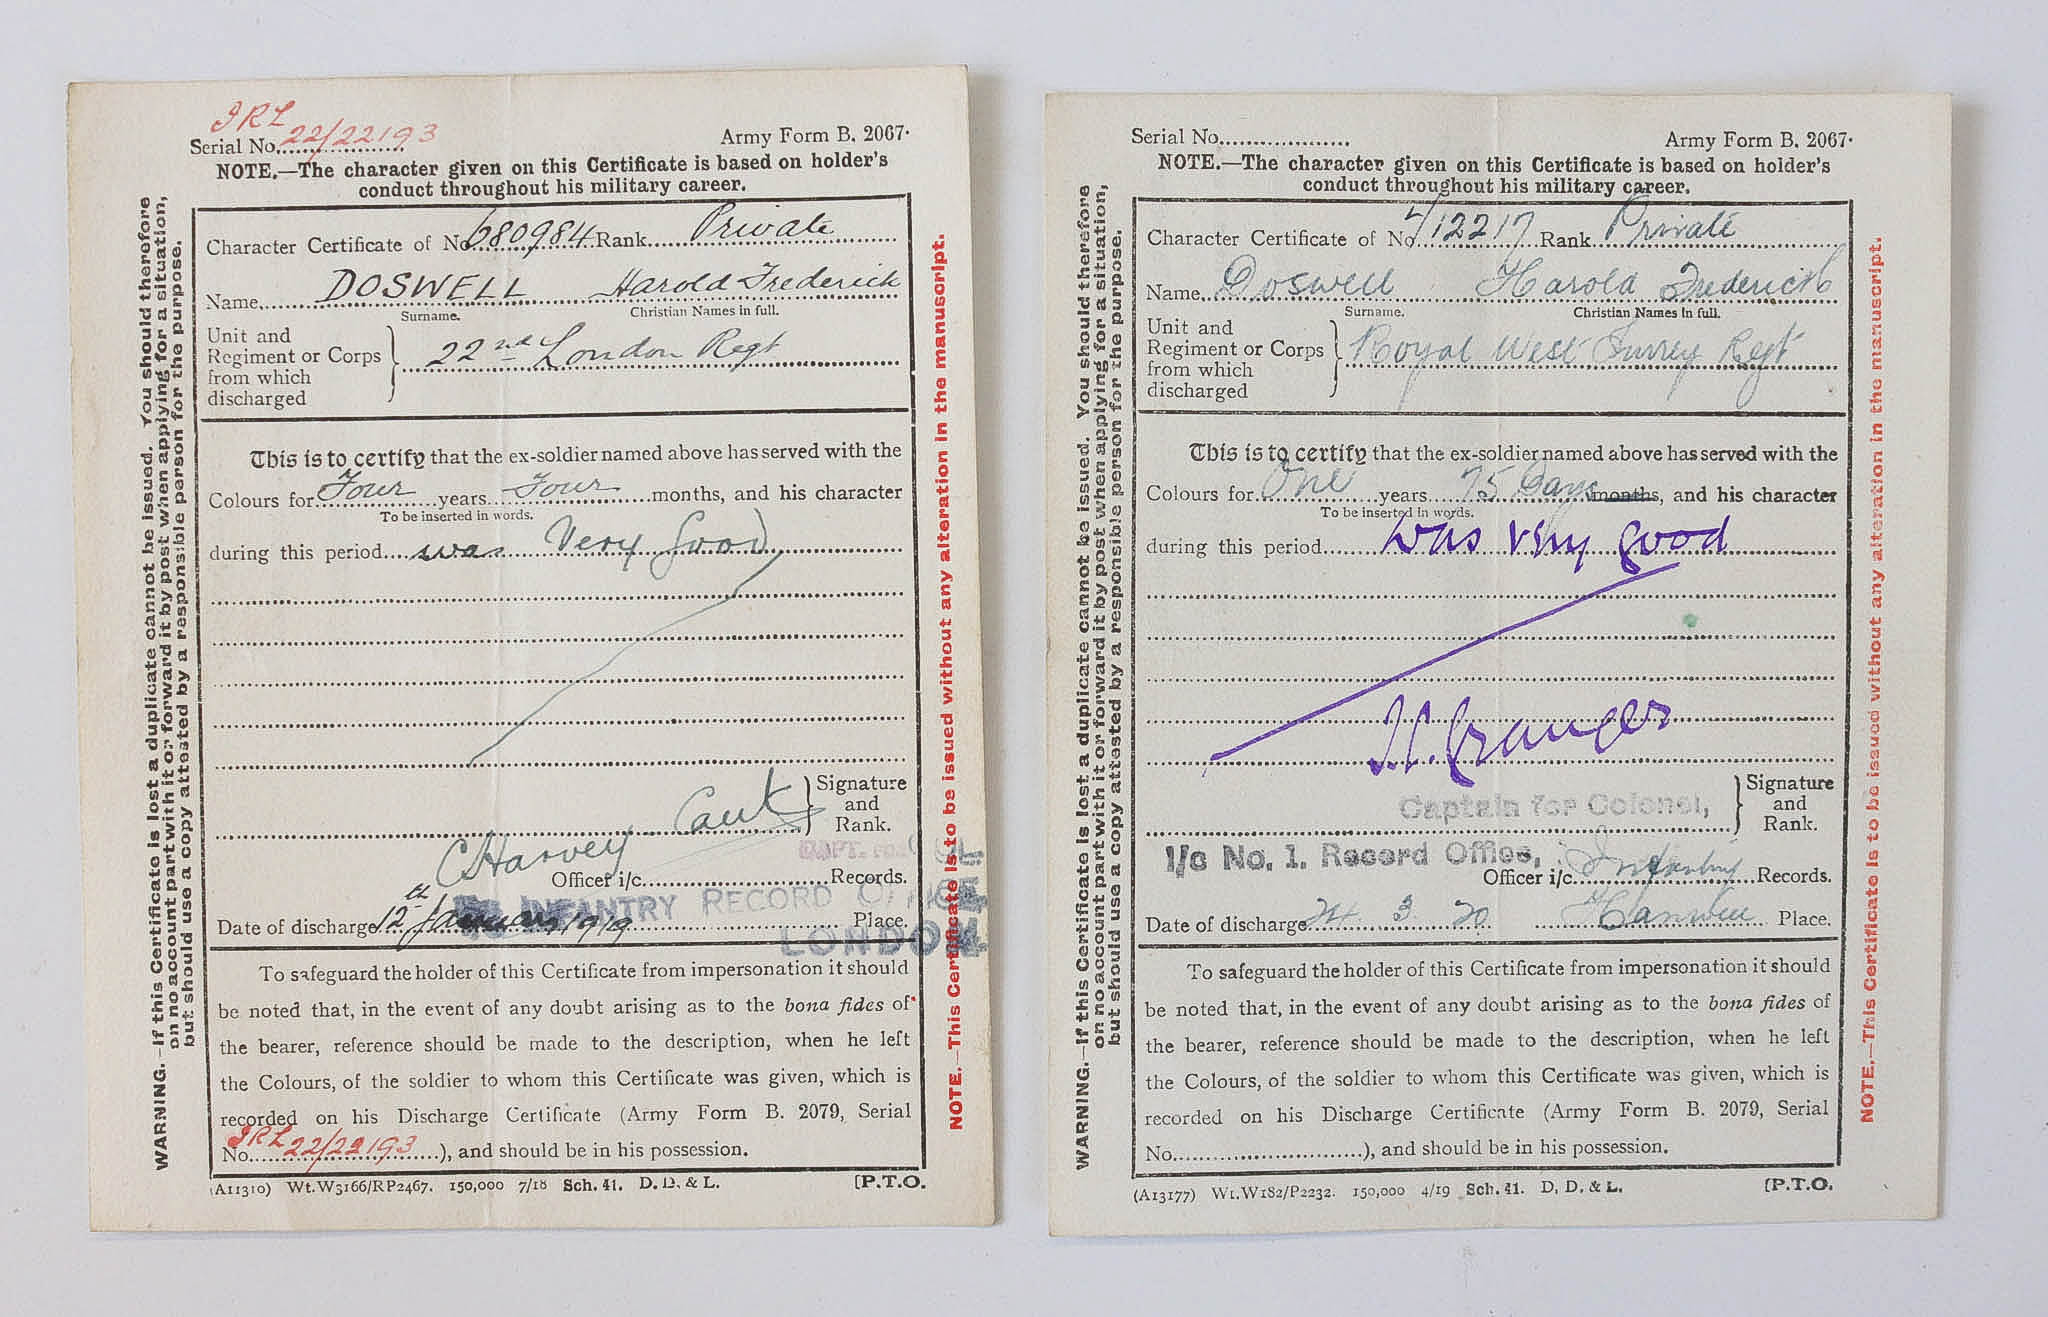 JRL
Serial No. 22/22193 Army Form B. 2067.
NOTE.—The character given on this Certificate is based on holder's
conduct throughout his military career.
Character Certificate of No. 680984 Rank Private
Name DOSWELL Harold Frederick
Surname. Christian Names in full.
Unit and
Regiment or Corps
from which
discharged
22nd London Regt
This is to certify that the ex-soldier named above has served with the
Colours for Four years Four months, and his character
To be inserted in words.
during this period was Very Good
Signature
and
Rank.
C Harvey Capt
CAPT. FOR COL.
Officer i/c Records.
INFANTRY RECORD OFFICE,
Date of discharge 12th January 1919 Place.
LONDON
To safeguard the holder of this Certificate from impersonation it should
be noted that, in the event of any doubt arising as to the bona fides of
the bearer, reference should be made to the description, when he left
the Colours, of the soldier to whom this Certificate was given, which is
recorded on his Discharge Certificate (Army Form B. 2079, Serial
JRL
No. 22/22193), and should be in his possession.
(A11310) Wt.W3166/RP2467. 150,000 7/18 Sch. 41. D. D. & L. [P.T.O.
WARNING.—If this Certificate is lost a duplicate cannot be issued. You should therefore
on no account part with it or forward it by post when applying for a situation,
but should use a copy attested by a responsible person for the purpose.
NOTE.—This Certificate is to be issued without any alteration in the manuscript.
Serial No. Army Form B. 2067.
NOTE.—The character given on this Certificate is based on holder's
conduct throughout his military career.
Character Certificate of No. /12217 Rank Private
Name Doswell Harold Frederick
Surname. Christian Names in full.
Unit and
Regiment or Corps
from which
discharged
Royal West Surrey Regt
This is to certify that the ex-soldier named above has served with the
Colours for One years 75 Days months, and his character
To be inserted in words.
during this period was very good
Granger
Captain for Colonel,
Signature
and
Rank.
I/c No. 1. Record Office,
Officer i/c Infantry Records.
Date of discharge 24. 3. 20 Hanwell Place.
To safeguard the holder of this Certificate from impersonation it should
be noted that, in the event of any doubt arising as to the bona fides of
the bearer, reference should be made to the description, when he left
the Colours, of the soldier to whom this Certificate was given, which is
recorded on his Discharge Certificate (Army Form B. 2079, Serial
No. ), and should be in his possession.
(A13177) Wt.W182/P2232. 150,000 4/19 Sch. 41. D. D. & L. [P.T.O.
WARNING.—If this Certificate is lost a duplicate cannot be issued. You should therefore
on no account part with it or forward it by post when applying for a situation,
but should use a copy attested by a responsible person for the purpose.
NOTE.—This Certificate is to be issued without any alteration in the manuscript.